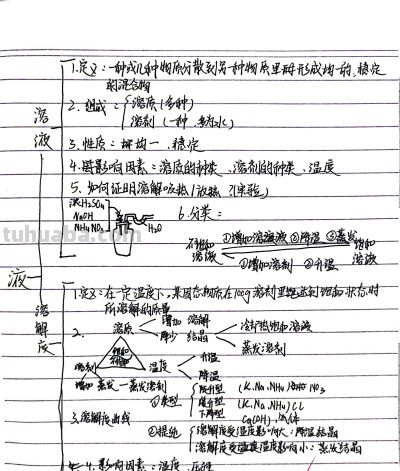 1.定义：一种或几种物质分散到另一种物质里形成均一的、稳定
的混合物
溶液
2. 组成：溶质(多种)
溶剂(一种，多为水)
3.性质：均一、稳定
4.影响因素：溶质的种类、溶剂的种类、温度
5. 如何证明溶解吸热/放热？(实验)
浓H₂SO₄
NaOH
NH₄NO₃
H₂O
6.分类：
①增加溶质 ②降温 ③蒸发
不饱和溶液
饱和溶液
①增加溶剂 ②升温
tuhuaba.com
液
溶解度
1.定义：在一定温度下，某固体物质在100g溶剂里达到饱和状态时
所溶解的质量
2.
溶质
增加 溶解
减少 结晶
冷却热饱和溶液
蒸发溶剂
溶剂
温度
升温
降温
增加 蒸发—蒸发溶剂
3.溶解度曲线
①类型
陡升型 (K.Na.NH₄) NO₃
缓升型 (K.Na.NH₄) Cl
下降型 Ca(OH)₂
②提纯
溶解度受温度影响大：降温结晶
溶解度受温度影响小：蒸发结晶
4.影响因素：温度、压强